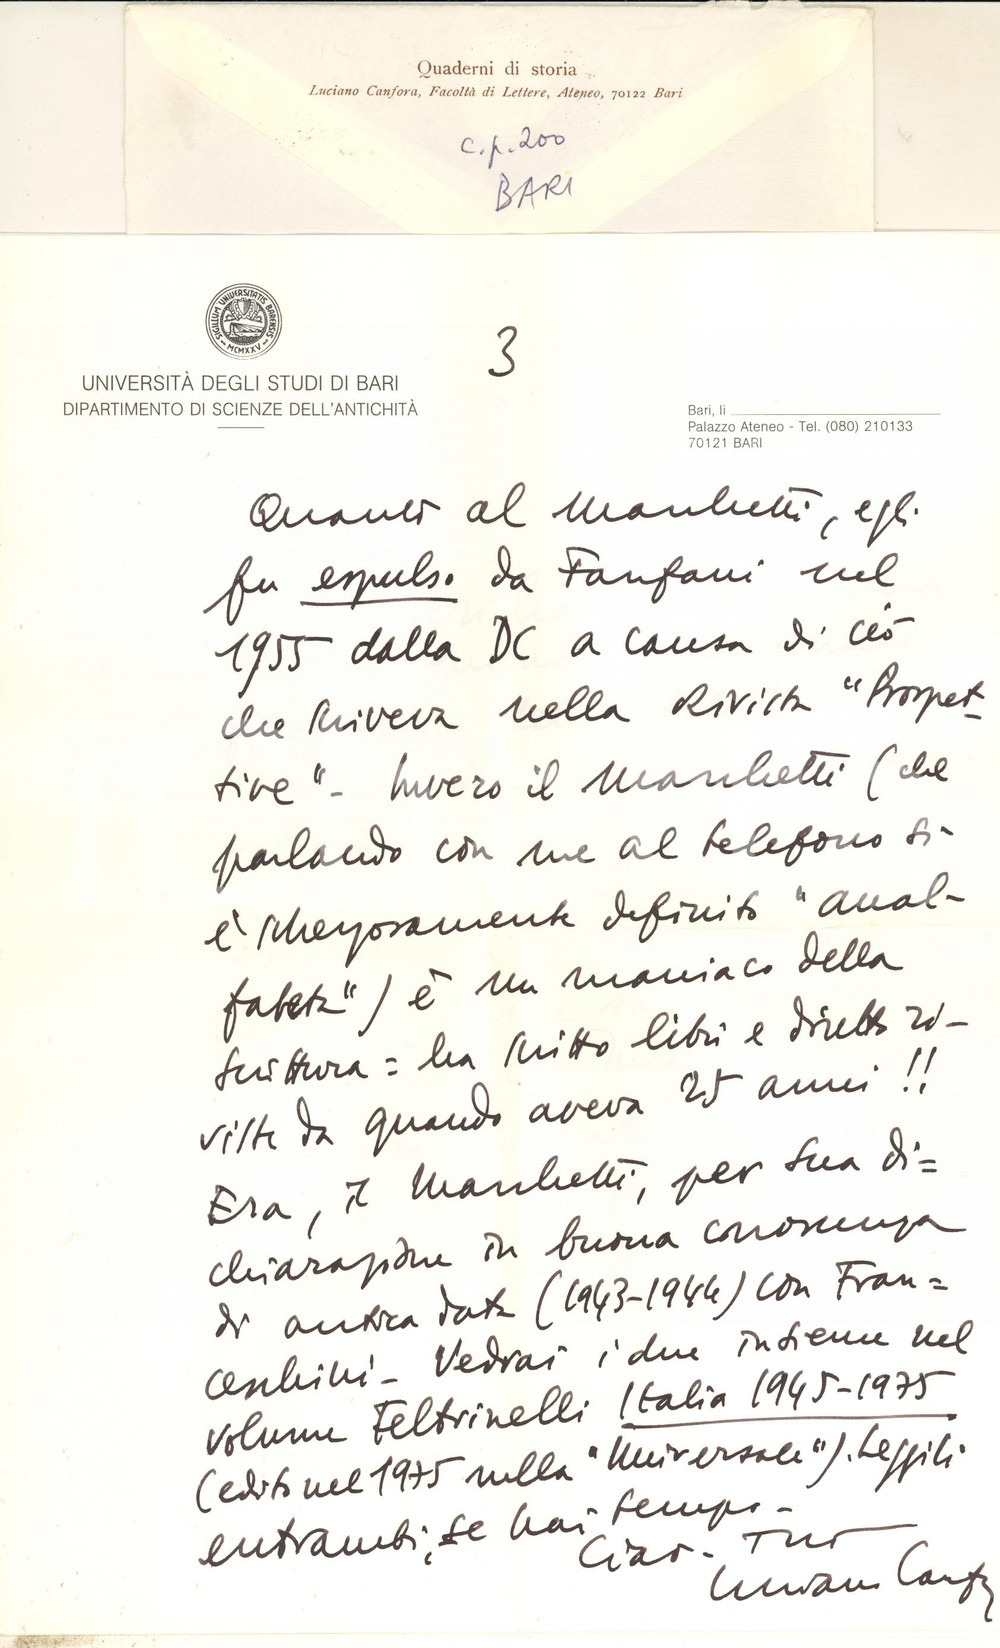 Quaderni di storia
Luciano Canfora, Facoltà di Lettere, Ateneo, 70122 Bari
c.p. 200
BARI
SIGILLUM UNIVERSITATIS BARENSIS
MCMXXV
UNIVERSITÀ DEGLI STUDI DI BARI
DIPARTIMENTO DI SCIENZE DELL'ANTICHITÀ
3
Bari, li
Palazzo Ateneo - Tel. (080) 210133
70121 BARI
Quanto al Marchetti, egli
fu espulso da Fanfani nel
1955 dalla DC a causa di ciò
che scriveva nella rivista "Prospet-
tive" - Invero il Marchetti (che
parlando con me al telefono si
è scherzosamente definito "anal-
fabeta") è un maniaco della
scrittura = ha scritto libri e diretto ri-
viste da quando aveva 25 anni!!
Era, il Marchetti, per sua di=
chiarazione in buona conoscenza
di antica data (1943-1944) con Fran=
ceschini - Vedrai i due insieme nel
volume Feltrinelli Italia 1945-1975
(edito nel 1975 nella "Universale"). Leggili
entrambi, se hai tempo -
Ciao - Tuo
Luciano Canfora